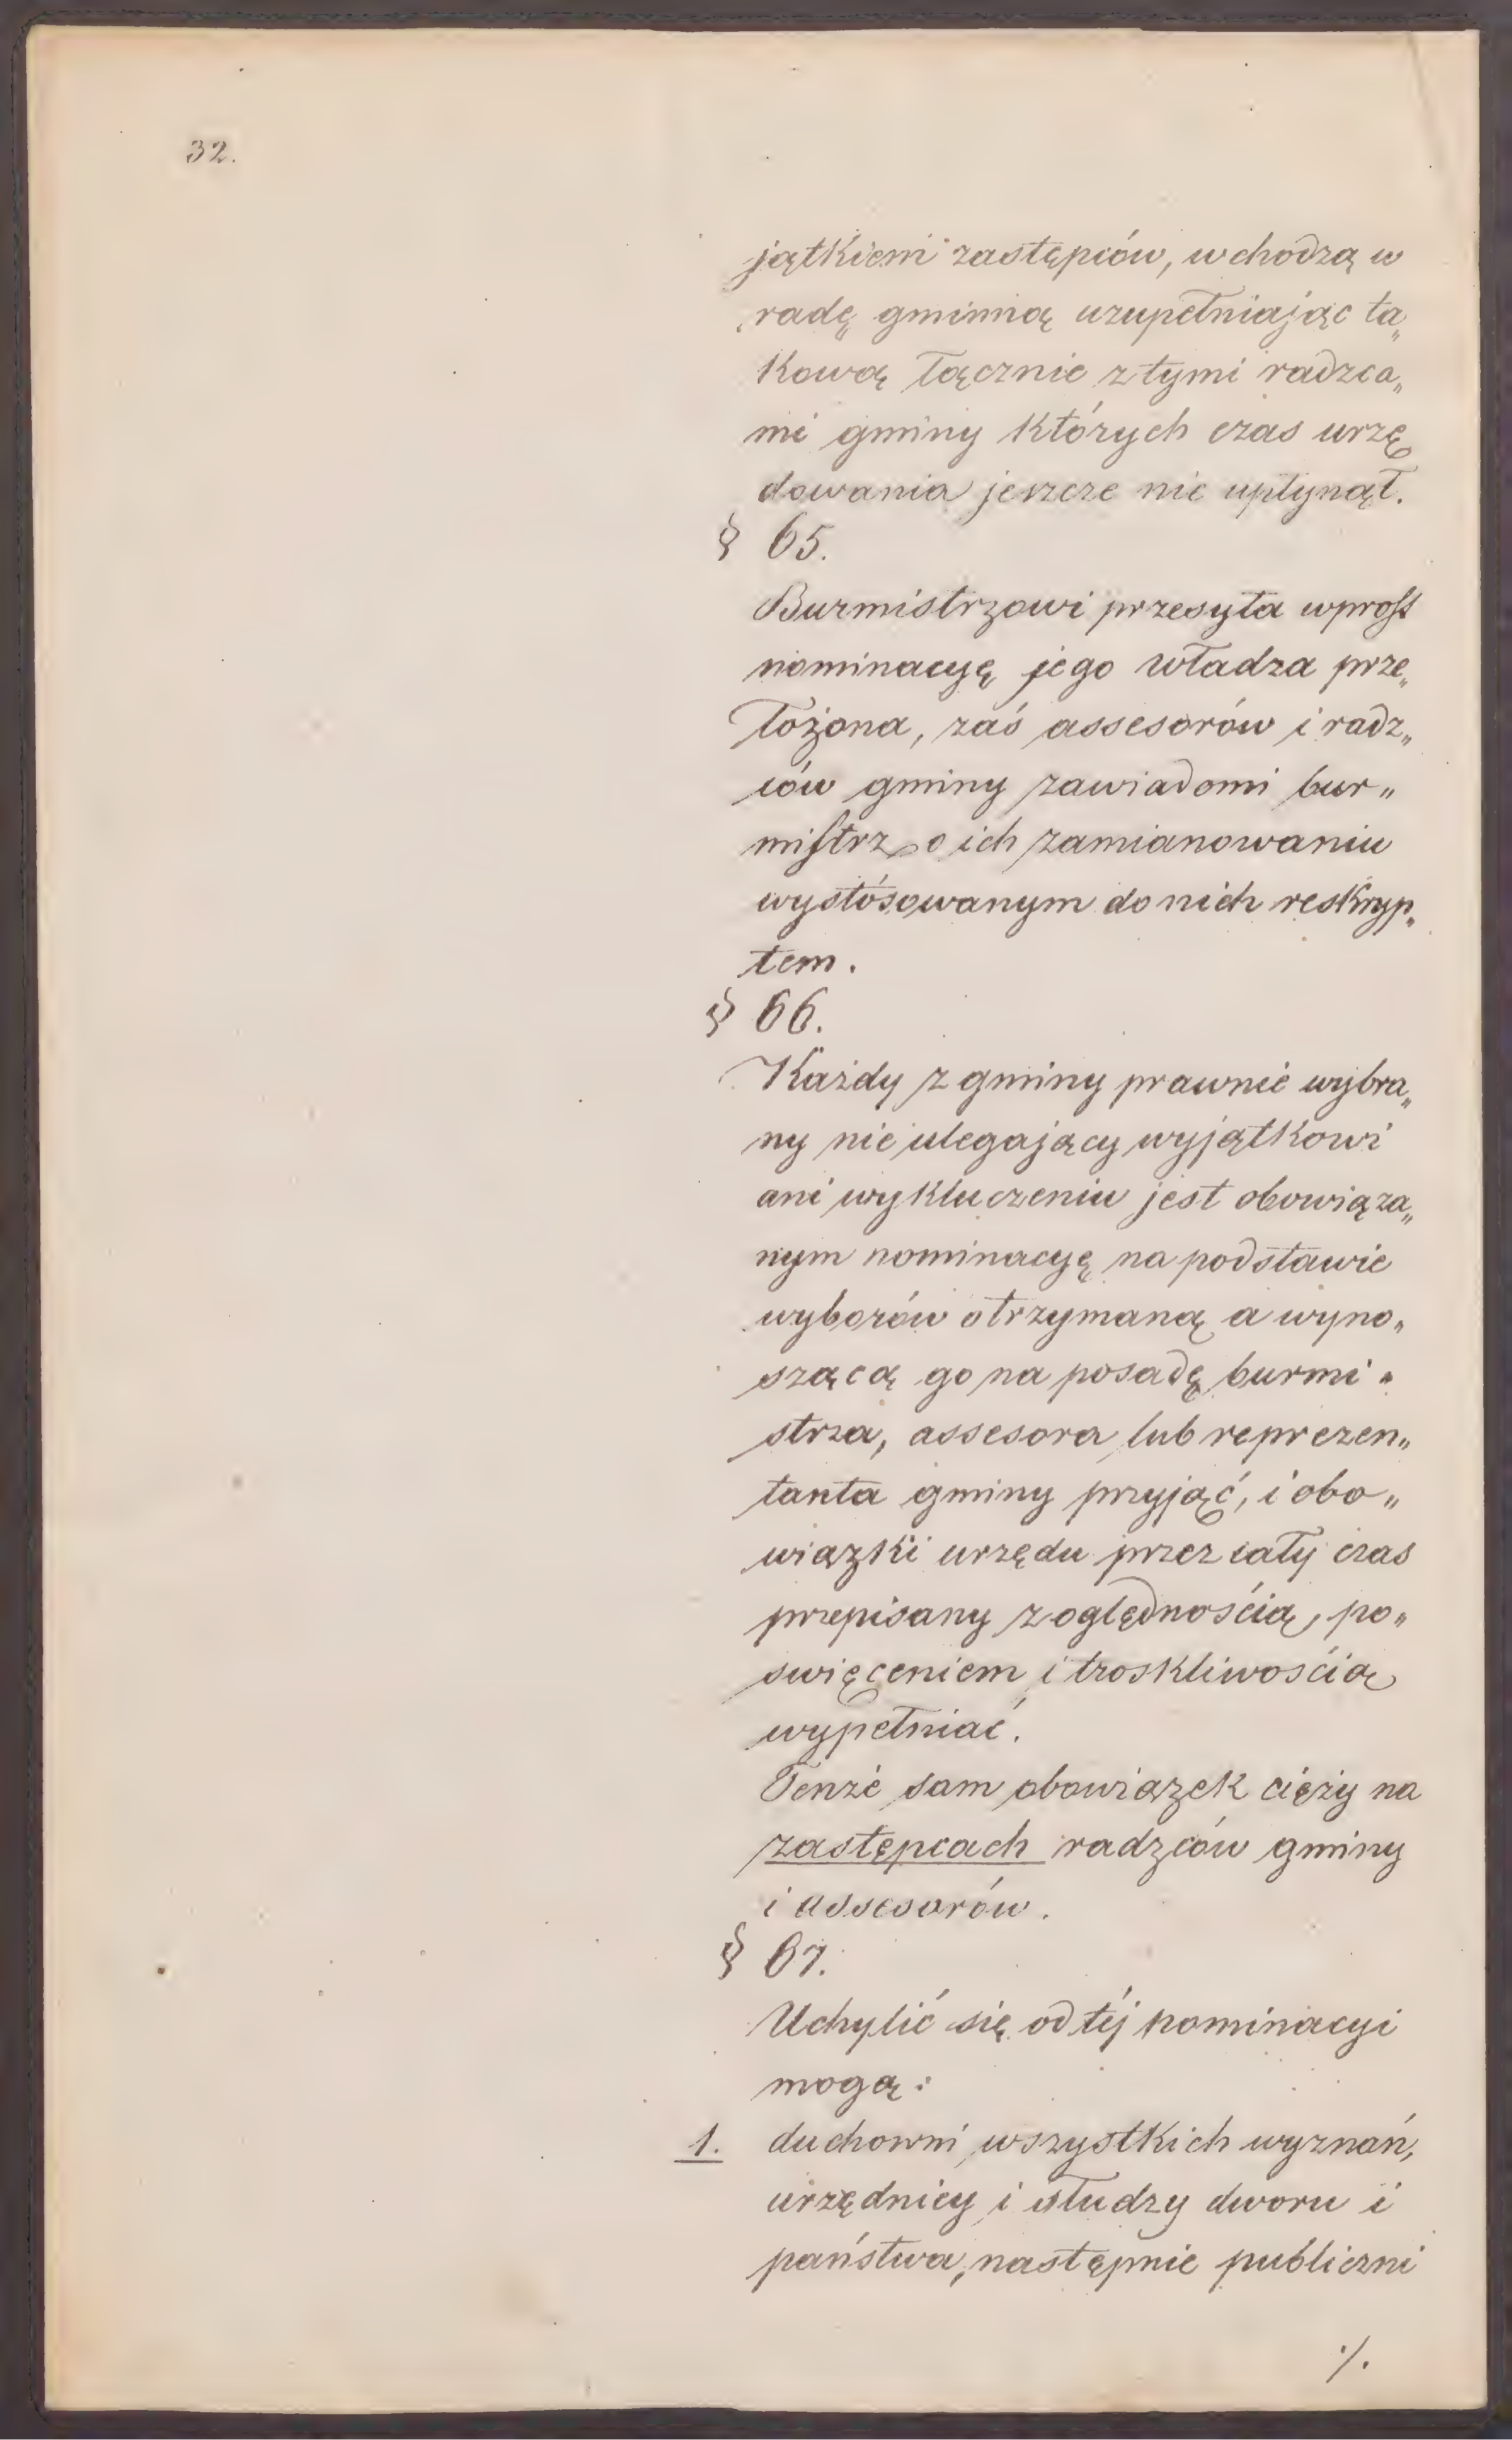 32.
jątkiem zastępców, wchodzą w
radę gminną uzupełniając ta„
kową łącznie z tymi radzca„
mi gminy których czas urzę
dowania jeszcze nie upłynął.
§ 65.
Burmistrzowi przesyła wprost
nominacyę jego władza prze„
łożona, zaś assesorów i radz„
ców gminy zawiadomi bur„
mistrz o ich zamianowaniu
wystósowanym do nich reskryp„
tem.
§ 66.
Każdy z gminy prawnie wybra„
ny nie ulegający wyjątkowi
ani wykluczeniu jest obowiąza„
nym nominacyę na podstawie
wyborów otrzymaną a wyno„
szącą go na posadę burmi„
strza, assesora lub reprezen„
tanta gminy przyjąć, i obo„
wiązki urzędu przez cały czas
przepisany z oględnością, po„
święceniem i troskliwością
wypełniać.
Tenże sam obowiązek cięży na
zastępcach radzców gminy
i assesorów.
§ 67.
Uchylić się od téj nominacyi
mogą:
1. duchowni wszystkich wyznań,
urzędnicy i słudzy dworu i
państwa, następnie publiczni
·/.